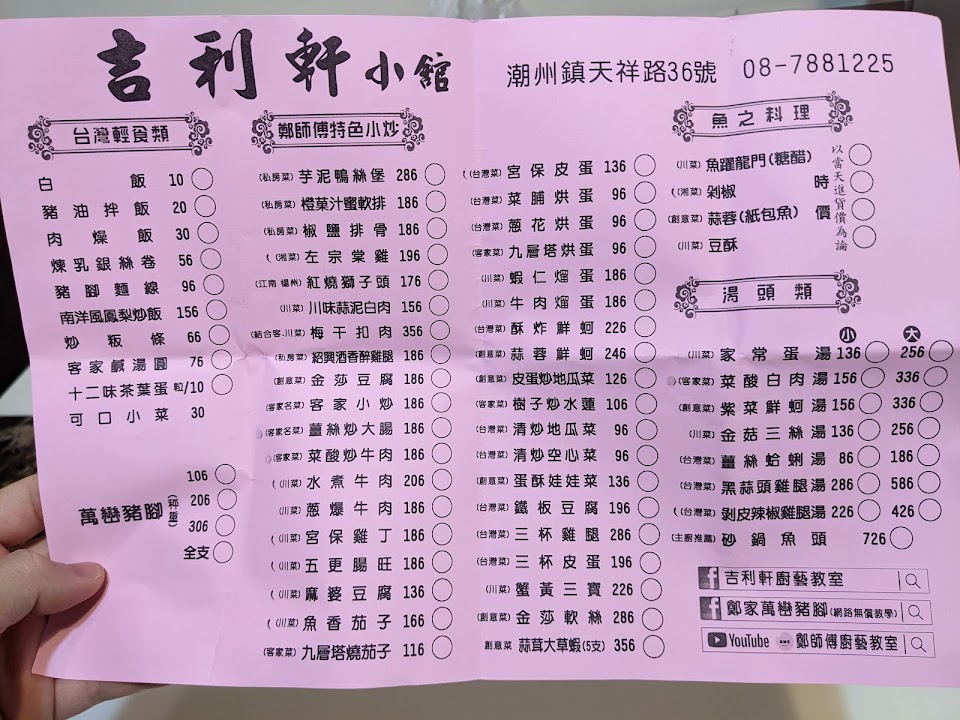 吉利軒小館
潮州鎮天祥路36號 08-7881225
台灣輕食類
白飯 10
豬油拌飯 20
肉燥飯 30
煉乳銀絲卷 56
豬腳麵線 96
南洋風鳳梨炒飯 156
炒粄條 66
客家鹹湯圓 76
十二味茶葉蛋 粒/10
可口小菜 30
萬巒豬腳(秤重)
106
206
306
全支
鄭師傅特色小炒
(私房菜) 芋泥鴨絲堡 286
(私房菜) 橙菓汁蜜軟排 186
(私房菜) 椒鹽排骨 186
(湘菜) 左宗棠雞 196
(江南 楊州) 紅燒獅子頭 176
(川菜) 川味蒜泥白肉 156
(結合客.川菜) 梅干扣肉 356
(私房菜) 紹興酒香醉雞腿 186
(創意菜) 金莎豆腐 186
(客家名菜) 客家小炒 186
(客家名菜) 薑絲炒大腸 186
(客家菜) 菜酸炒牛肉 186
(川菜) 水煮牛肉 206
(川菜) 蔥爆牛肉 186
(川菜) 宮保雞丁 186
(川菜) 五更腸旺 186
(川菜) 麻婆豆腐 136
(川菜) 魚香茄子 166
(客家菜) 九層塔燒茄子 116
(台灣菜) 宮保皮蛋 136
(台灣菜) 菜脯烘蛋 96
(台灣菜) 蔥花烘蛋 96
(客家菜) 九層塔烘蛋 96
(川菜) 蝦仁熘蛋 186
(川菜) 牛肉熘蛋 186
(台灣菜) 酥炸鮮蚵 226
(創意菜) 蒜蓉鮮蚵 246
(創意菜) 皮蛋炒地瓜菜 126
(客家菜) 樹子炒水蓮 106
(台灣菜) 清炒地瓜菜 96
(台灣菜) 清炒空心菜 96
(創意菜) 蛋酥娃娃菜 136
(台灣菜) 鐵板豆腐 196
(台灣菜) 三杯雞腿 286
(台灣菜) 三杯皮蛋 196
(川菜) 蟹黃三寶 226
(創意菜) 金莎軟絲 286
創意菜 蒜茸大草蝦(5支) 356
魚之料理
(川菜) 魚躍龍門(糖醋)
(湘菜) 剁椒
(創意菜) 蒜蓉(紙包魚)
(川菜) 豆酥
時價
以當天進貨價為論
湯頭類
小 大
(川菜) 家常蛋湯 136 256
(客家菜) 菜酸白肉湯 156 336
(創意菜) 紫菜鮮蚵湯 156 336
(川菜) 金菇三絲湯 136 256
(台灣菜) 薑絲蛤蜊湯 86 186
(台灣菜) 黑蒜頭雞腿湯 286 586
(台灣菜) 剝皮辣椒雞腿湯 226 426
(主廚推薦) 砂鍋魚頭 726
吉利軒廚藝教室
鄭家萬巒豬腳(網路無償教學)
YouTube 鄭師傅廚藝教室